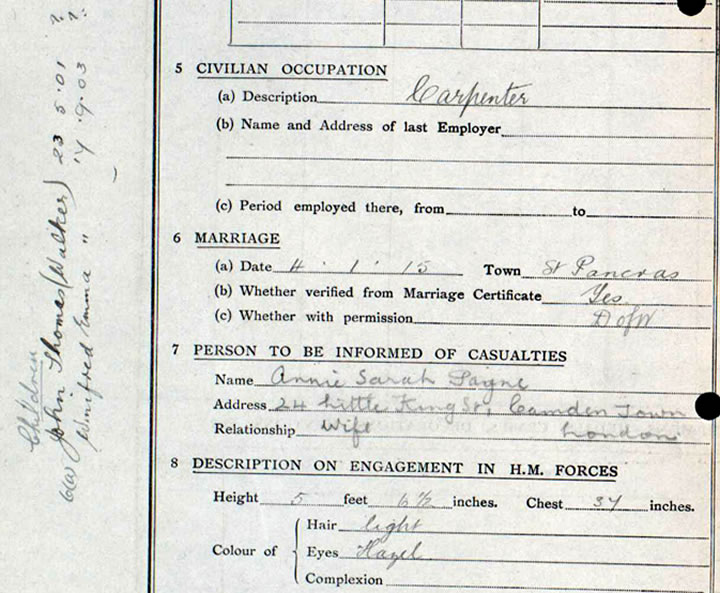 5 CIVILIAN OCCUPATION
(a) Description Carpenter
(b) Name and Address of last Employer
(c) Period employed there, from to
6 MARRIAGE
(a) Date 4 . 1 . 15 Town St Pancras
(b) Whether verified from Marriage Certificate Yes
(c) Whether with permission D of W
7 PERSON TO BE INFORMED OF CASUALTIES
Name Annie Sarah Payne
Address 24 Little King St, Camden Town
Relationship Wife London
8 DESCRIPTION ON ENGAGEMENT IN H.M. FORCES
Height 5 feet 6½ inches. Chest 37 inches.
Colour of
Hair light
Eyes Hazel
Complexion
Children
John Thomas (Walker) 23 5.01 ?
Winifred Emma " 9.03 ?